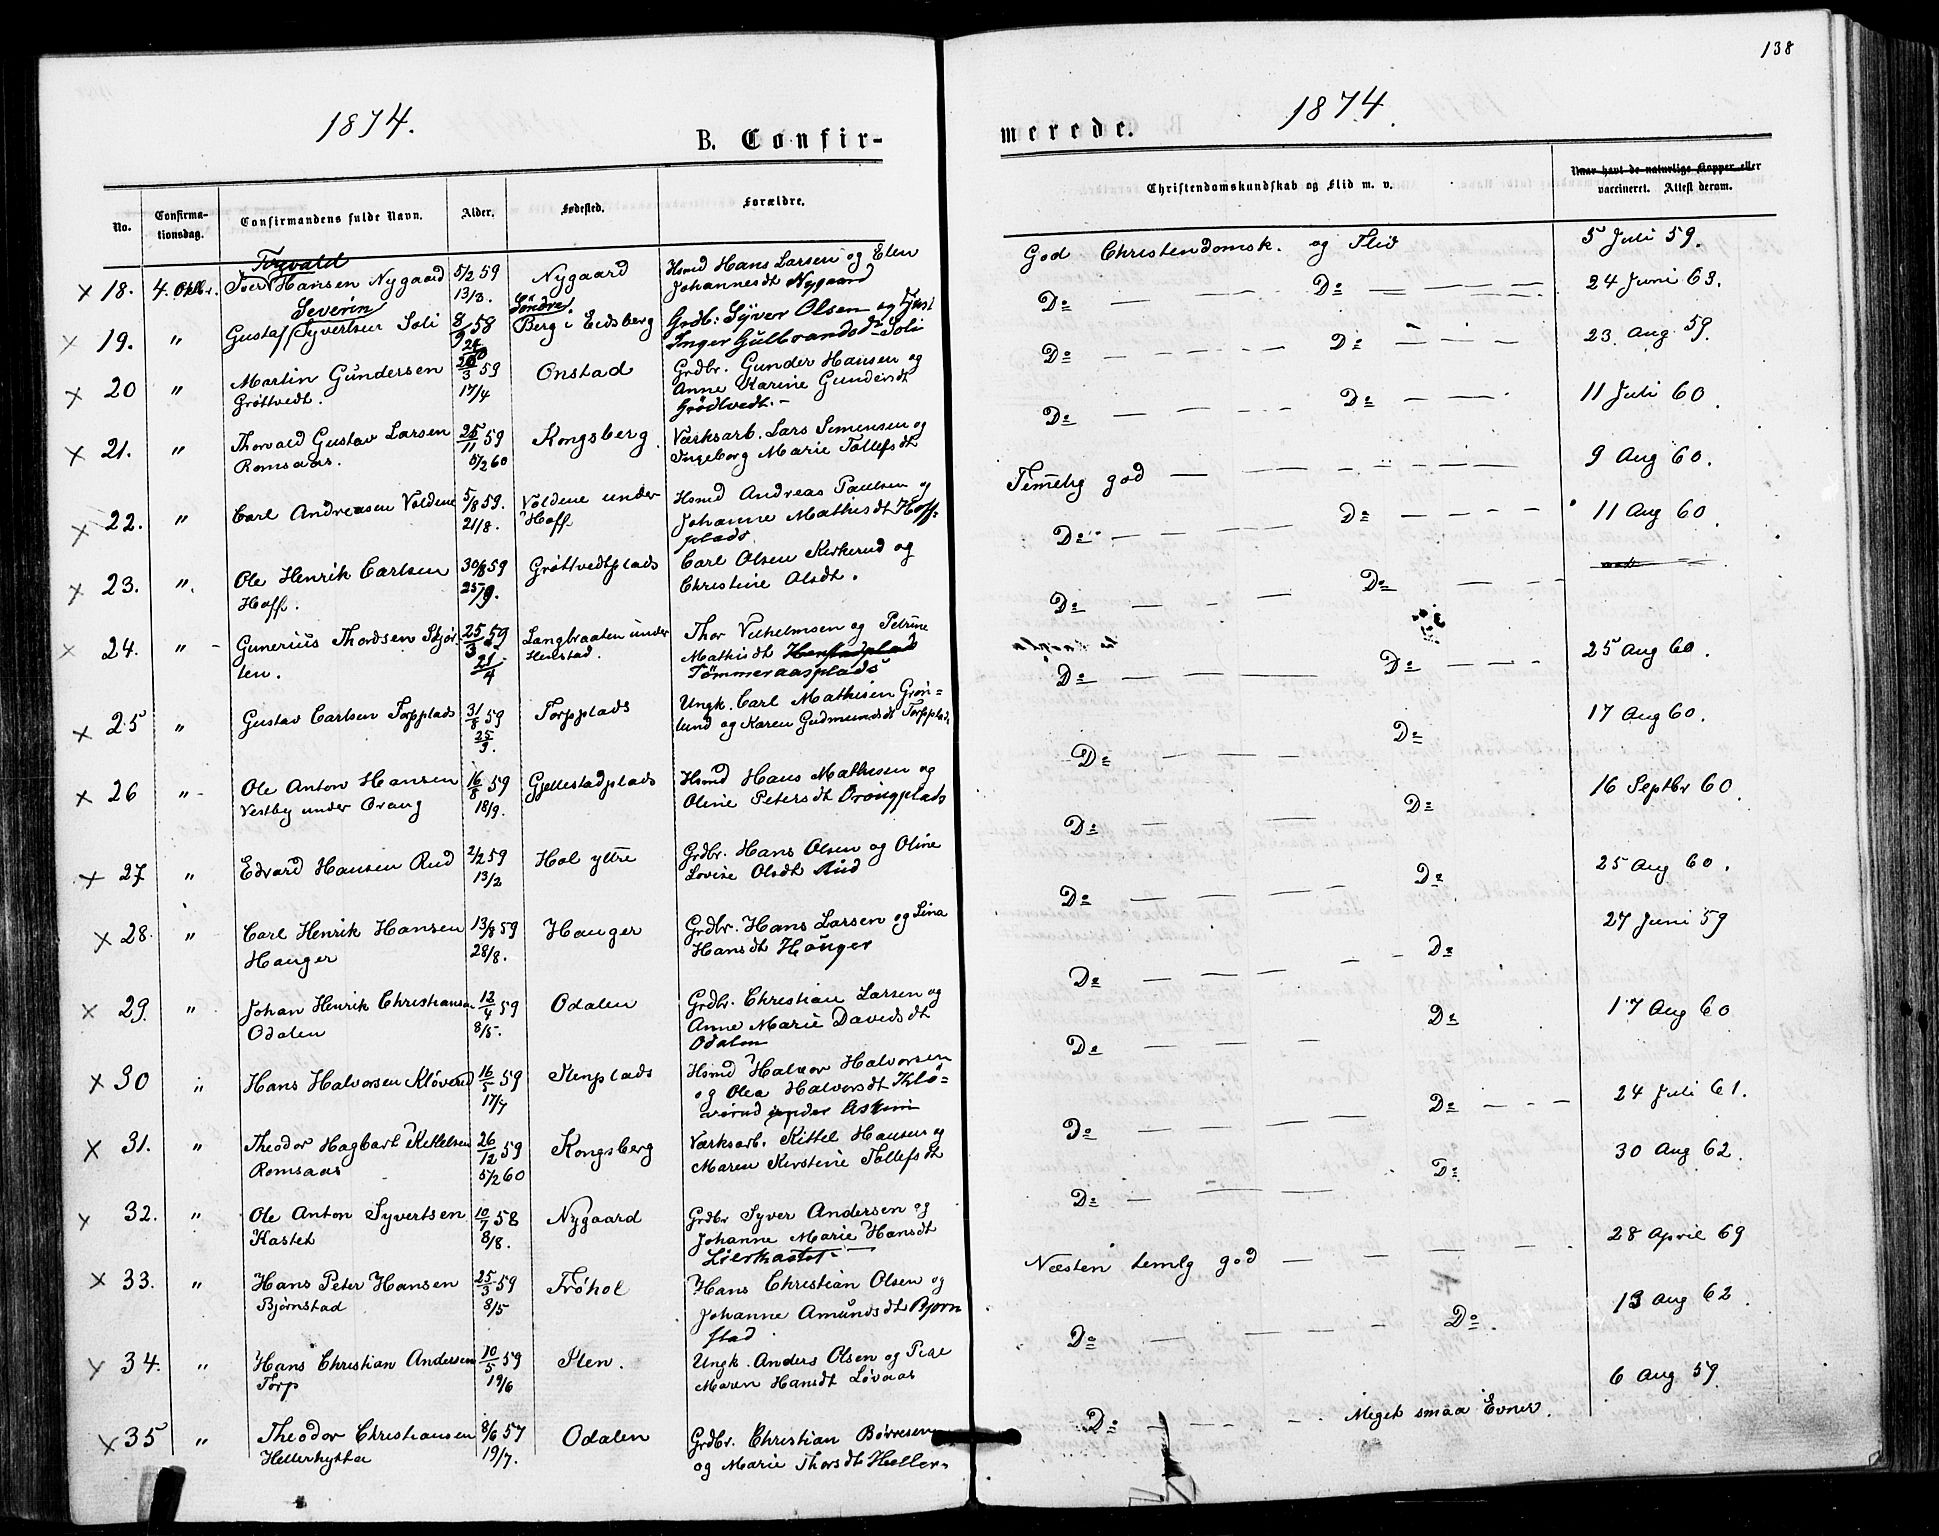 1874.
B. Confir-
No.
Confirma-
tionsdag.
Confirmandens fulde Navn.
Alder.
Fødested.
Forældre.
18.
4. Oktbr.
Torvald
Iver Hansen Nygaard
5/2 59
13/3.
Nygaard
Hsmd Hans Larsen og Elen
Johannesdt Nygaard
19.
"
Severin
Gustaf Syvertsen Soli
8/9 58
Søndre
Berg i Eidsberg
Grdbr. Syver Olsen og
Inger Gulbrandsdt Soli
20
"
Martin Gundersen
Grøttvedt.
59
17/4
Onstad
Grdbr. Gunder Hansen og
Anne Karine Gundersdt
Grødtvedt. -
21.
"
Thorvald Gustav Larsen
Romsaas.
25/11 59
5/2 60
Kongsberg.
Værksarb. Lars Simensen og
Ingeborg Marie Tollefsdt
22.
"
Carl Andreasen Voldene
5/8 59.
21/8.
Voldene under
Hoff
Hsmd Andreas Paulsen og
Johanne Mathisdt Hoff-
plads
23.
"
Ole Henrik Carlsen
Hoff.
30/8 59
25/9.
Grøttvedtplads
Carl Olsen Kirkerud og
Christine Olsdt.
24.
"
Gunerius Thordsen Skjør-
ten.
25/3 59
21/4
Langbraaten under
Henstad.
Thor Vilhelmsen og Petrine
Mathisdt Henstadplad
Tømmeraasplads
25
"
Gustav Carlsen Torpplads
31/8 59
25/9.
Torpplads
Ungk. Carl Mathisen Grøn-
lund og Karen Gudmundsdt Torpplads
26
"
Ole Anton Hansen
Vestby under Oraug
16/8 59
18/9.
Gjellestadplads
Hsmd Hans Mathisen og
Oline Petersdt Orougplads
27
"
Edvard Hansen Rud
2/2 59
13/2
Hol ytre
Grdbr. Hans Olsen og Oline
Lovise Olsdt Rud
28.
"
Carl Henrik Hansen
Hauger
13/8 59
28/8.
Hauger
Grdbr. Hans Larsen og Lina
Hansdt Hauger
29.
"
Johan Henrik Christiansen
Odalen
12/4 59
8/5.
Odalen
Grdbr. Christian Larsen og
Anne Marie Davidsdt
Odalen
30
"
Hans Halvorsen Kløverud
16/5 59
17/7
Stenplads
Hsmd Halvor Halvorsen
og Olea Halvorsdt Klø-
verud under Askim
31.
"
Theodor Hagbart Kittelsen
Romsaas
26/12 59
5/2 60
Kongsberg
Værksarb. Kittel Hansen og
Maren Kirstine Tollefsdt
32.
"
Ole Anton Syvertsen
Kastet
10/7 58
8/8.
Nygaard
Grdbr Syver Andersen og
Johanne Marie Hansdt
Lierkastet -
33.
"
Hans Peter Hansen
Bjørnstad
25/3 59
8/5
Frøhol
Hans Christian Olsen og
Johanne Amundsdt Bjørn
stad
34.
"
Hans Christian Andersen
Torp
10/5 59
19/6
Sten.
Ungk. Anders Olsen og Pige
Maren Hansdt Løvaas
35
"
Theodor Christiansen
Hellerhytta
8/6 57
19/7.
Odalen
Grdbr. Christian Børresen
og Marie Thorsdt Heller-
138
1874.
merede.
Christendomskundskab og Flid m. v.
Naar havt de naturlige Kopper eller
vaccineret. Attest derom.
God Christendomsk. og Flid
5 Juli 59.
Do — — — Do — — —
24 Juni 63.
Do — — — Do — — —
23. Aug 59.
Do — — — Do — — —
11 Juli 60.
Temelig god — — — —
9 Aug 60.
Do — — — Do — — —
11 Aug 60
Do — — — Do — — —
Do — — — Do — — —
25 Aug 60.
Do — — — Do
17 Aug 60.
Do — — — Do
16 Septbr 60.
Do — — — Do
25 Aug 60.
Do — — — Do
27 Juni 59
Do — — — Do
17 Aug 60
Do — — — Do — — —
24 Juli 61.
Do — — — Do
30 Aug 62.
Næsten temlg god — — — —
28 April 69
Do — — — Do.
13 Aug 62.
Do — — — Meget smaa Evner.
6 Aug 59.